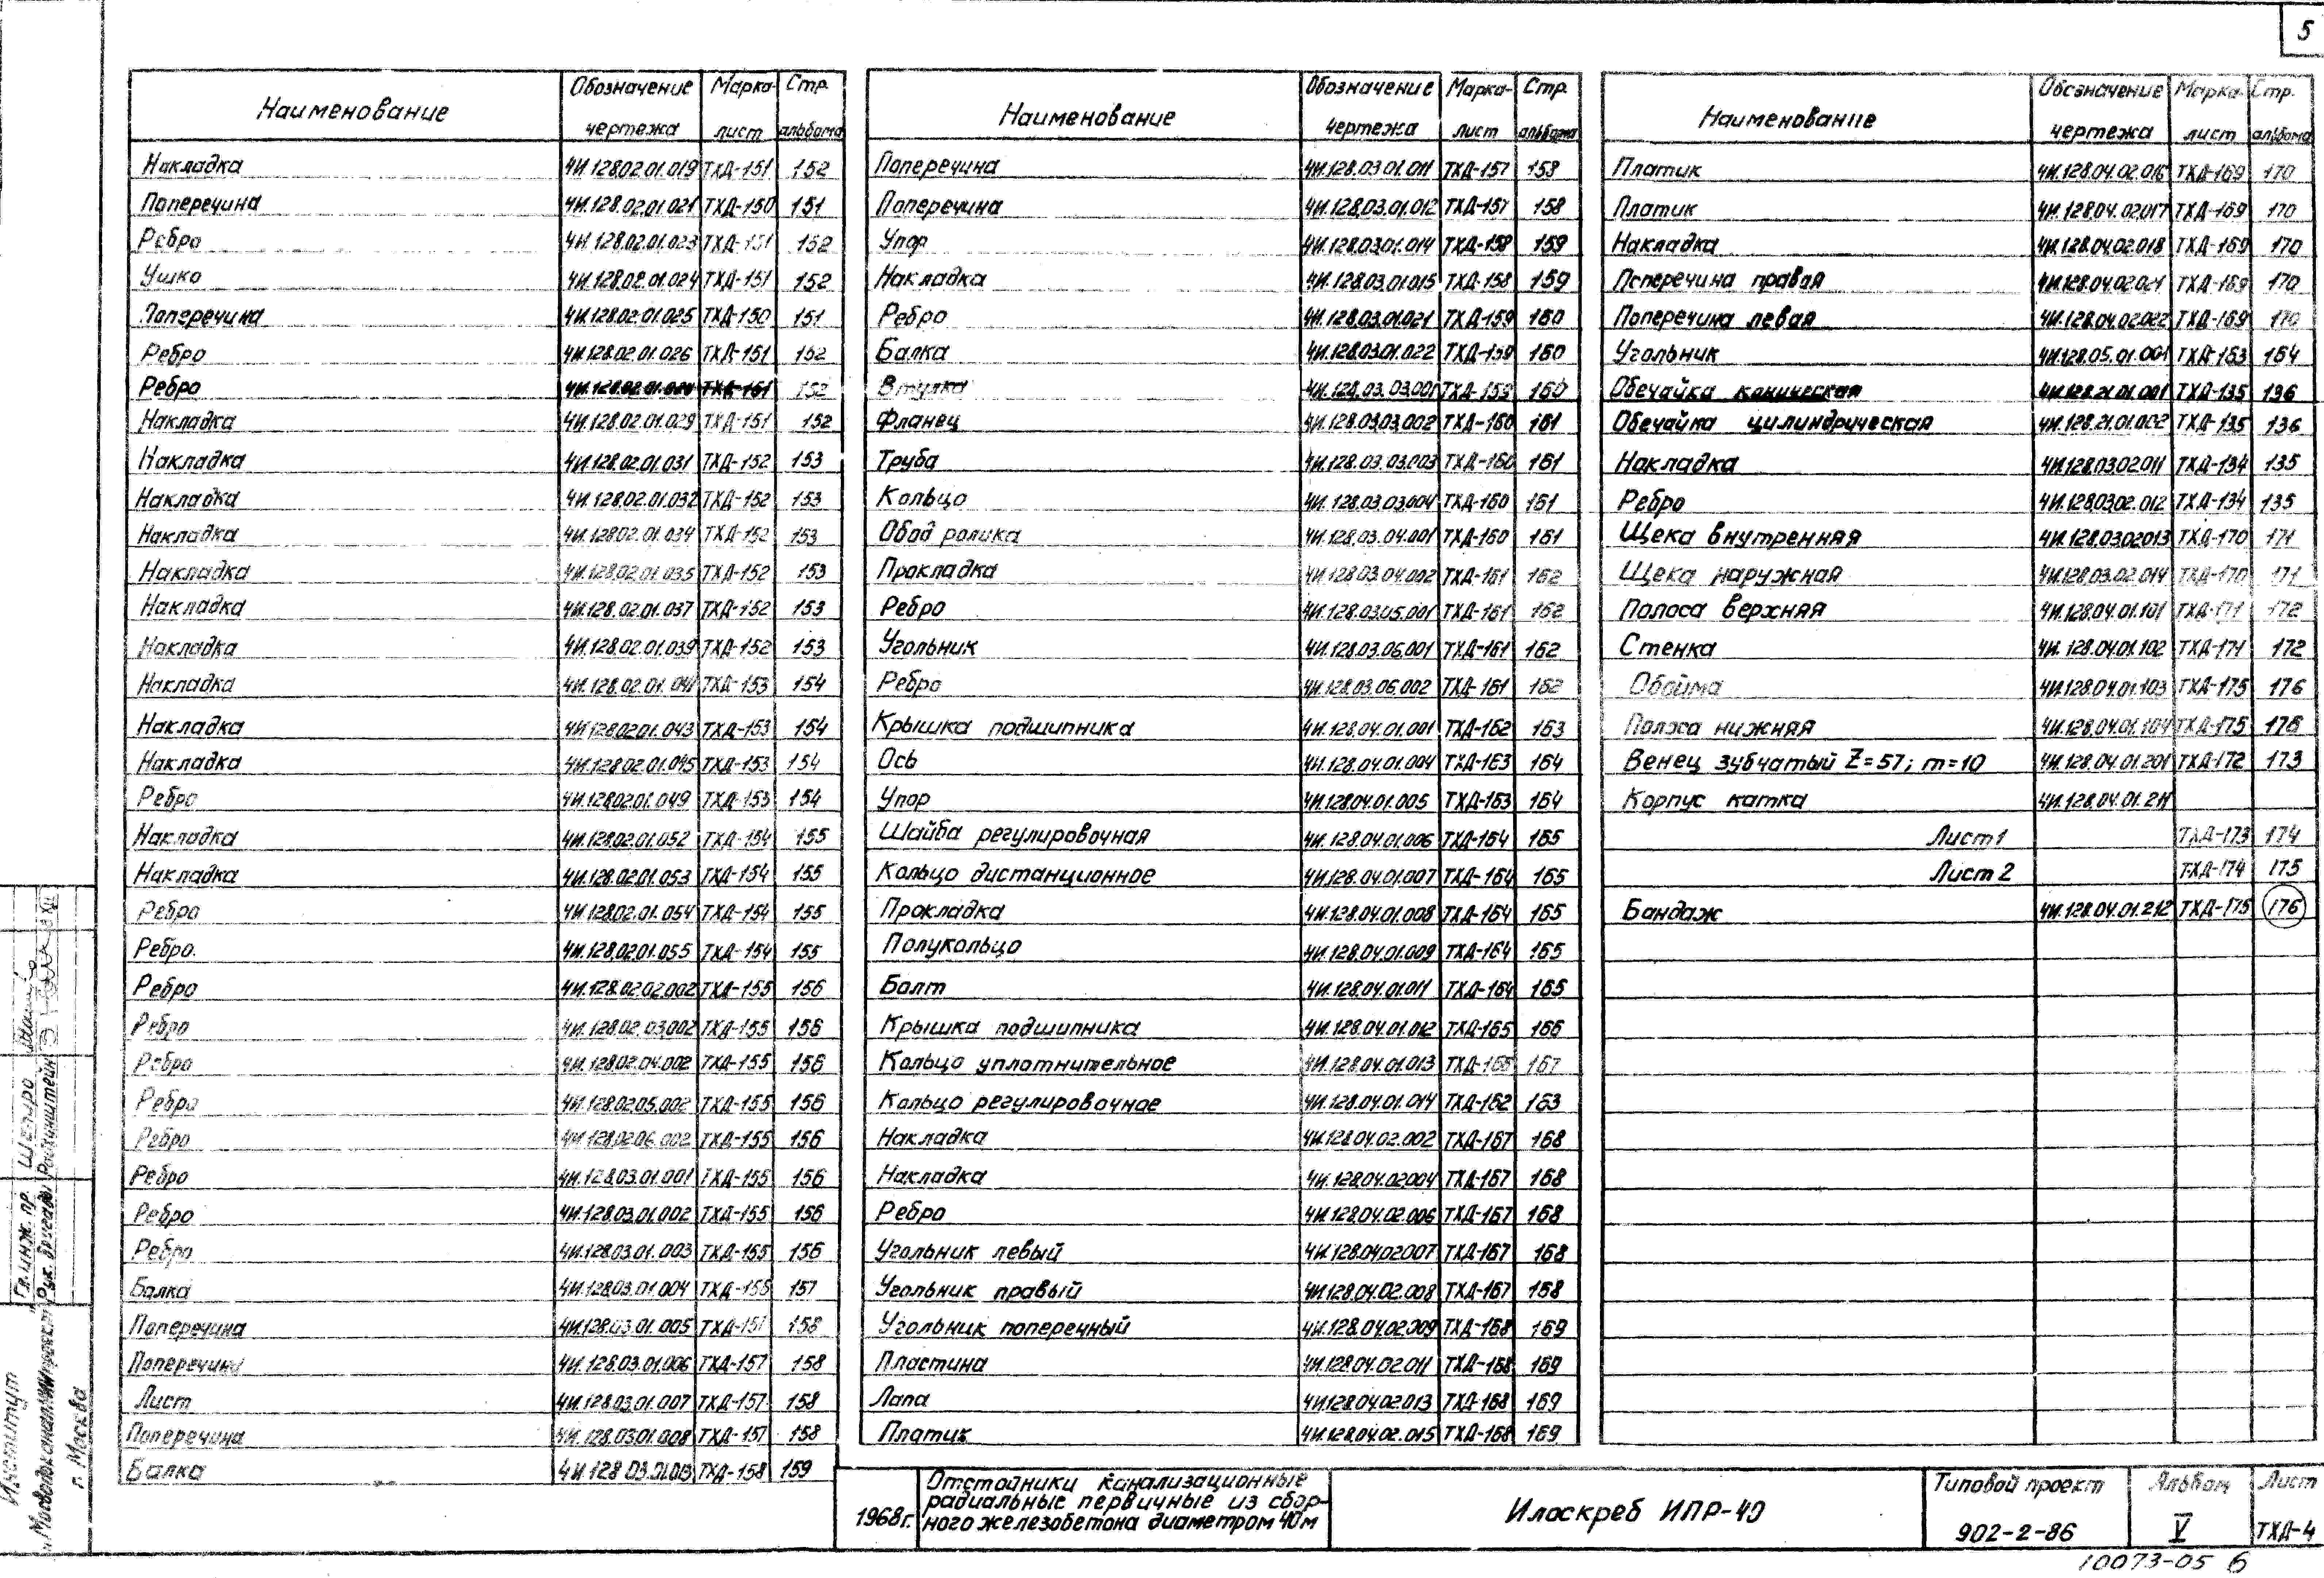 5
Наименование Обозначение чертежа Марка-лист Стр. альбома
Накладка 4И.128.02.01.019 ТХД-151 152
Поперечина 4И.128.02.01.021 ТХД-150 151
Ребро 4И.128.02.01.023 ТХД-151 152
Ушко 4И.128.02.01.024 ТХД-151 152
Поперечина 4И.128.02.01.025 ТХД-150 151
Ребро 4И.128.02.01.026 ТХД-151 152
Ребро ТХД-151 152
Накладка 4И.128.02.01.029 ТХД-151 152
Накладка 4И.128.02.01.031 ТХД-152 153
Накладка 4И.128.02.01.032 ТХД-152 153
Накладка 4И.128.02.01.034 ТХД-152 153
Накладка 4И.128.02.01.035 ТХД-152 153
Накладка 4И.128.02.01.037 ТХД-152 153
Накладка 4И.128.02.01.039 ТХД-152 153
Накладка 4И.128.02.01.041 ТХД-153 154
Накладка 4И.128.02.01.043 ТХД-153 154
Накладка 4И.128.02.01.045 ТХД-153 154
Ребро 4И.128.02.01.049 ТХД-153 154
Накладка 4И.128.02.01.052 ТХД-154 155
Накладка 4И.128.02.01.053 ТХД-154 155
Ребро 4И.128.02.01.054 ТХД-154 155
Ребро. 4И.128.02.01.055 ТХД-154 155
Ребро 4И.128.02.02.002 ТХД-155 156
Ребро 4И.128.02.03.002 ТХД-155 156
Ребро 4И.128.02.04.002 ТХД-155 156
Ребро 4И.128.02.05.002 ТХД-155 156
Ребро 4И.128.02.06.002 ТХД-155 156
Ребро 4И.128.03.01.001 ТХД-155 156
Ребро 4И.128.03.01.002 ТХД-155 156
Ребро 4И.128.03.01.003 ТХД-155 156
Балка 4И.128.03.01.004 ТХД-156 157
Поперечина 4И.128.03.01.005 ТХД-157 158
Поперечина 4И.128.03.01.006 ТХД-157 158
Лист 4И.128.03.01.007 ТХД-157 158
Поперечина 4И.128.03.01.008 ТХД-157 158
Балка 4И.128.03.01.013 ТХД-158 159
Наименование Обозначение чертежа Марка-лист Стр. альбома
Поперечина 4И.128.03.01.011 ТХД-157 158
Поперечина 4И.128.03.01.012 ТХД-157 158
Упор 4И.128.03.01.014 ТХД-158 159
Накладка 4И.128.03.01.015 ТХД-158 159
Ребро 4И.128.03.01.021 ТХД-159 160
Балка 4И.128.03.01.022 ТХД-159 160
Втулка 4И.128.03.03.001 ТХД-159 160
Фланец 4И.128.03.03.002 ТХД-160 161
Труба 4И.128.03.03.003 ТХД-160 161
Кольцо 4И.128.03.03.004 ТХД-160 161
Обод ролика 4И.128.03.04.001 ТХД-160 161
Прокладка 4И.128.03.04.002 ТХД-161 162
Ребро 4И.128.03.05.001 ТХД-161 162
Угольник 4И.128.03.06.001 ТХД-161 162
Ребро 4И.128.03.06.002 ТХД-161 162
Крышка подшипника 4И.128.04.01.001 ТХД-162 163
Ось 4И.128.04.01.004 ТХД-163 164
Упор 4И.128.04.01.005 ТХД-163 164
Шайба регулировочная 4И.128.04.01.006 ТХД-164 165
Кольцо дистанционное 4И.128.04.01.007 ТХД-164 165
Прокладка 4И.128.04.01.008 ТХД-164 165
Полукольцо 4И.128.04.01.009 ТХД-164 165
Болт 4И.128.04.01.011 ТХД-164 165
Крышка подшипника 4И.128.04.01.012 ТХД-165 166
Кольцо уплотнительное 4И.128.04.01.013 ТХД-166 167
Кольцо регулировочное 4И.128.04.01.014 ТХД-162 163
Накладка 4И.128.04.02.002 ТХД-167 168
Накладка 4И.128.04.02.004 ТХД-167 168
Ребро 4И.128.04.02.006 ТХД-167 168
Угольник левый 4И.128.04.02.007 ТХД-167 168
Угольник правый 4И.128.04.02.008 ТХД-167 168
Угольник поперечный 4И.128.04.02.009 ТХД-168 169
Пластина 4И.128.04.02.011 ТХД-168 169
Лапа 4И.128.04.02.013 ТХД-168 169
Платик 4И.128.04.02.015 ТХД-168 169
Наименование Обозначение чертежа Марка-лист Стр. альбома
Платик 4И.128.04.02.016 ТХД-169 170
Платик 4И.128.04.02.017 ТХД-169 170
Накладка 4И.128.04.02.018 ТХД-169 170
Поперечина правая 4И.128.04.02.021 ТХД-169 170
Поперечина левая 4И.128.04.02.022 ТХД-169 170
Угольник 4И.128.05.01.001 ТХД-153 154
Обечайка коническая 4И.128.21.01.001 ТХД-135 136
Обечайка цилиндрическая 4И.128.21.01.002 ТХД-135 136
Накладка 4И.128.03.02.011 ТХД-134 135
Ребро 4И.128.03.02.012 ТХД-134 135
Щека внутренняя 4И.128.03.02.013 ТХД-170 171
Щека наружная 4И.128.03.02.014 ТХД-170 171
Полоса верхняя 4И.128.04.01.101 ТХД-171 172
Стенка 4И.128.04.01.102 ТХД-171 172
Обойма 4И.128.04.01.103 ТХД-175 176
Полоса нижняя 4И.128.04.01.104 ТХД-175 176
Венец зубчатый Z=57; m=10 4И.128.04.01.201 ТХД-172 173
Корпус катка 4И.128.04.01.211
Лист 1 ТХД-173 174
Лист 2 ТХД-174 175
Бандаж 4И.128.04.01.212 ТХД-175 176
Институт
"Мосводоканалниипроект"
г. Москва
Гл. инж. пр. Шапиро
Рук. бригады
1968г.
Отстойники канализационные
радиальные первичные из сбор-
ного железобетона диаметром 40м
Илоскреб ИПР-40
Типовой проект
902-2-86
Альбом
V
Лист
ТХД-4
10073-05 6